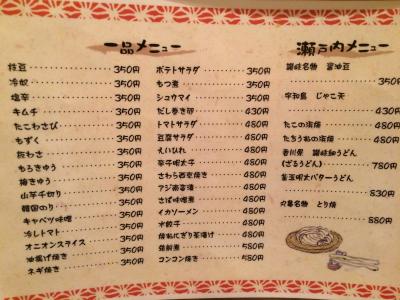 一品メニュー
枝豆 350円
冷奴 350円
塩辛 350円
キムチ 350円
たこわさび 350円
もずく 350円
板わさ 350円
もろきゅう 350円
梅きゅう 350円
山芋千切り 350円
韓国のり 350円
キャベツ味噌 350円
冷しトマト 350円
オニオンスライス 350円
油揚げ焼き 350円
ネギ焼き 350円
ポテトサラダ 350円
もつ煮 350円
シュウマイ 350円
だし巻き卵 430円
トマトサラダ 480円
豆腐サラダ 480円
えいひれ 480円
辛子明太子 480円
さわら西京焼き 480円
アジ南蛮漬 480円
さば味噌煮 480円
イカソーメン 480円
水餃子 480円
焼おにぎり茶漬け 480円
筑前煮 580円
コンコン焼き 580円
瀬戸内メニュー
讃岐名物 醤油豆
350円
宇和島 じゃこ天
430円
たこの海焼 480円
たちうおの海焼 480円
香川県 讃岐細うどん
(ざるうどん) 780円
釜玉明太バターうどん
830円
丸亀名物 とり焼
880円